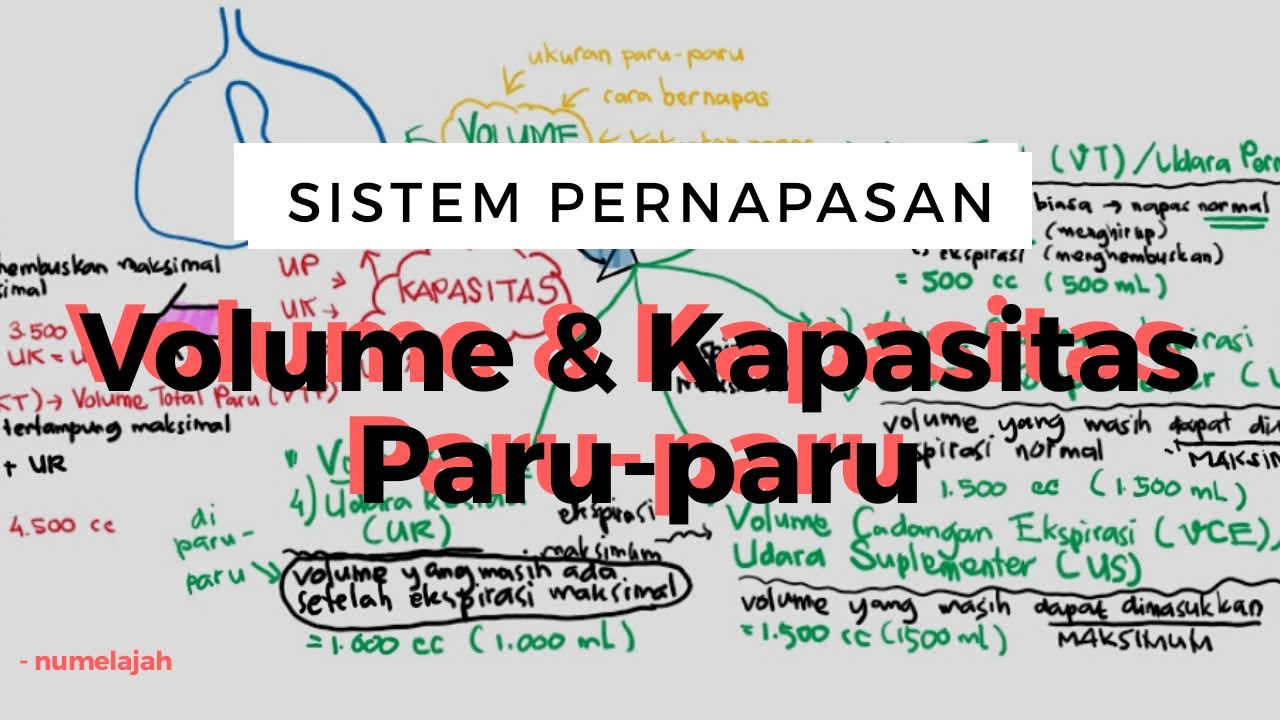 ukuran paru-paru
cara bernapas
VOLUME
SISTEM PERNAPASAN
(VT) / Udara Pern
biasa → napas normal
(menghirup)
ekspirasi (menghembuskan)
= 500 cc (500 mL)
hembuskan maksimal
simal
UP
UK →
KAPASITAS
3.500
UK = U
Volume & Kapasitas
Paru-paru
KT) → Volume Total Paru (VTP)
tertampung maksimal
+ UR
4.500 cc
volume yang masih dapat di
spirasi normal
MAKSIM
1.500 cc (1.500 mL)
di
paru-
paru
4) Udara Residu
(UR)
ekspirasi
maksimum
volume yang masih ada
setelah ekspirasi maksimal
= 1.000 cc (1.000 mL)
Volume Cadangan Ekspirasi (VCE),
Udara Suplementer (US)
volume yang masih dapat dimasukkan
MAKSIMUM
= 1.500 cc (1500 mL)
- numelajah